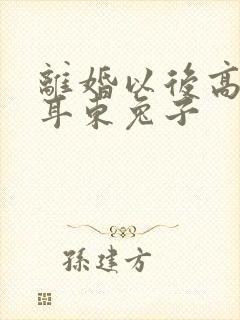 離婚以後高
耳東兔子
孫建方